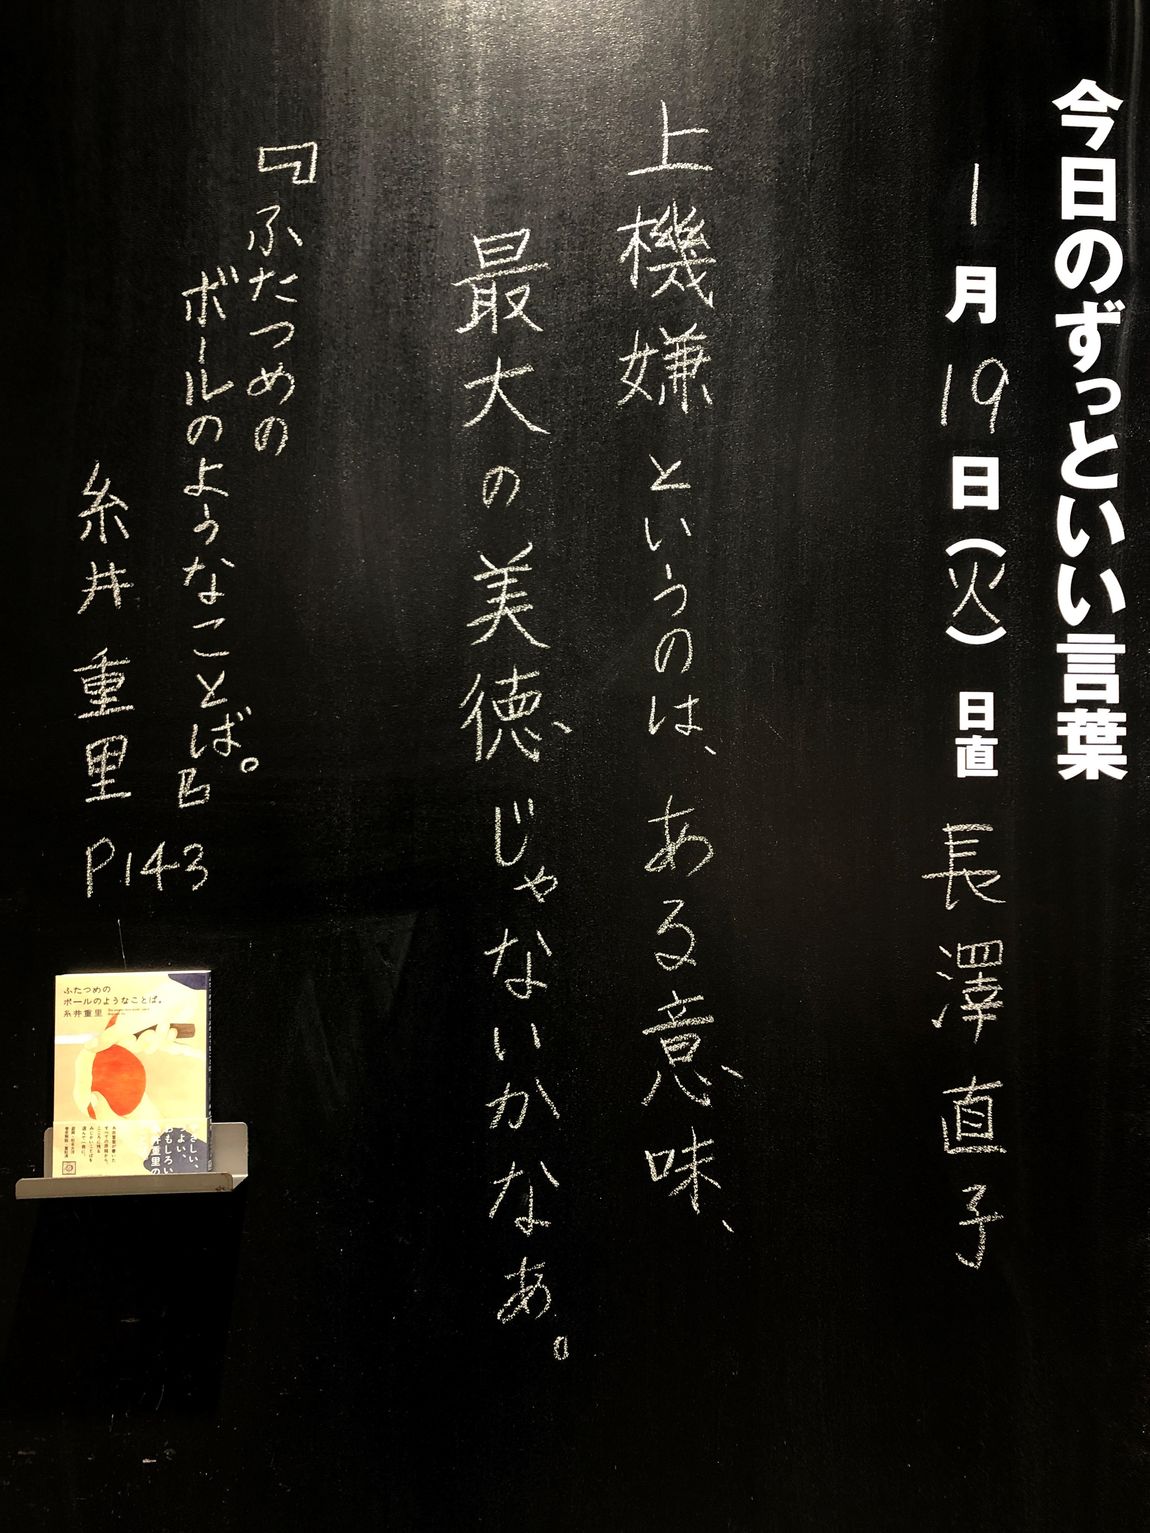 今日のずっといい言葉
1月19日(火) 日直 長澤直子
上機嫌というのは、ある意味、
最大の美徳じゃないかなぁ。
『ふたつめの
ボールのようなことば。』
糸井重里 P143
ふたつめの
ボールのようなことば。
糸井重里